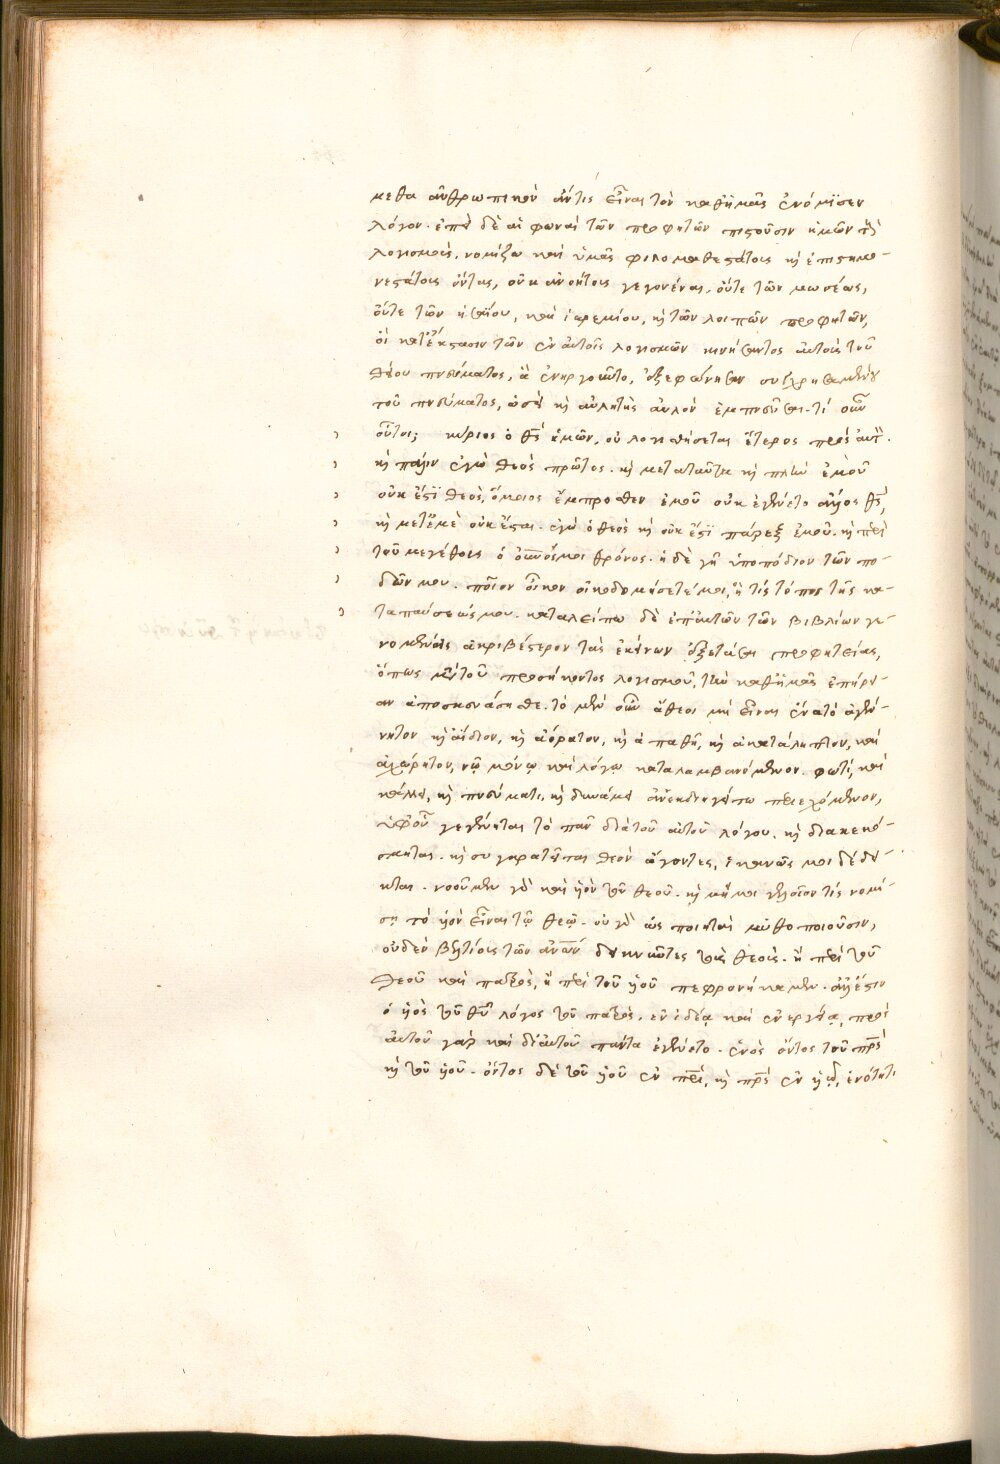 μεθα ἀνθρωπικὸν ἄν τις εἶναι τὸν καθ' ἡμᾶς ἐνόμϊσεν
λόγον. ἐπεὶ δὲ αἱ φωναὶ τῶν προφητῶν πιστοῦσιν ἡμῶν τοὺς
λογισμούς, νομίζω καὶ ὑμᾶς φιλομαθεστάτους κ(αὶ) ἐπιστημο-
νεστάτους ὄντας, οὐκ ἀνοήτους γεγονέναι, οὔτε τῶν μωσέως,
οὔτε τῶν ἡσαΐου, καὶ ἱερεμίου, κ(αὶ) τῶν λοιπῶν προφητῶν,
οἱ κατ' ἔκστασιν τῶν ἐν αὐτοῖς λογισμῶν κινήσαντος αὐτοὺς τοῦ
θείου πνεύματος, ἃ ἐνηργοῦντο, ἐξεφώνησαν συγχρησαμένου
τοῦ πνεύματος, ὡσεὶ κ(αὶ) αὐλητὴς αὐλὸν ἐμπνεῦσαι. τί οὖν
οὗτοι; κύριος ὁ θς ἡμῶν, οὐ λογισθήσεται ἕτερος πρὸς αὐτόν.
κ(αὶ) πάλιν ἐγὼ θεὸς πρῶτος. κ(αὶ) μετὰ ταῦτα κ(αὶ) πλὴν ἐμοῦ
οὐκ ἔστϊ θεός, ὅμοιος ἔμπροσθεν ἐμοῦ οὐκ ἐγένετο ἄλλος θς,
κ(αὶ) μετ' ἐμὲ οὐκ ἔσται. ἐγὼ ὁ θεὸς κ(αὶ) οὐκ ἔστϊ πάρεξ ἐμοῦ. κ(αὶ) περὶ
τοῦ μεγέθους ὁ οὐνός μοι θρόνος. ἡ δὲ γῆ ὑποπόδιον τῶν πο-
δῶν μου. ποῖον οἶκον οἰκοδομήσετέ μοι, ἢ τίς τόπος τῆς κα-
ταπαύσεώς μου. καταλείπω δὲ ἐπ' αὐτῶν τῶν βιβλίων γε-
νομένοις ἀκριβέστερον τὰς ἐκείνων ἐξετάσαι προφητείας,
ὅπως μετὰ τοῦ προσήκοντος λογισμοῦ, τὴν καθ' ἡμᾶς ἐπήρει-
αν ἀποσκευάσησθε. τὸ μὲν οὖν ἄθεοι μὴ εἶναι ἕνα τὸ ἀγέν-
νητον κ(αὶ) ἀΐδιον, κ(αὶ) ἀόρατον, κ(αὶ) ἀπαθῆ, κ(αὶ) ἀκατάληπτον, καὶ
ἀχώρητον, νῷ μόνῳ καὶ λόγῳ καταλαμβανόμενον. φωτί, καὶ
κάλλει, κ(αὶ) πνεύματι, κ(αὶ) δυνάμει ἀνεκδιηγήτῳ περιεχόμενον,
ὑφ' οὗ γεγένηται τὸ πᾶν διὰ τοῦ αὐτοῦ λόγου. κ(αὶ) διακεκό-
σμηται. κ(αὶ) συγκρατεῖται θεὸν ἄγοντες, ἱκανῶς μοι δέδει-
κται. νοοῦμεν γὰρ καὶ υἱὸν τοῦ θεοῦ. κ(αὶ) μή μοι γελοῖον τίς νομί-
ση τὸ υἱὸν εἶναι τῷ θεῷ. οὐ γὰρ ὡς ποιηταὶ μυθοποιοῦσιν,
οὐδὲν βελτίους τῶν ἀνων δεικνύντες τοὺς θεούς. ἢ περὶ τοῦ
θεοῦ καὶ πατρὸς, ἢ περὶ τοῦ υἱοῦ πεφρονήκαμεν. ἀλλ' ἔστιν
ὁ υἱὸς τοῦ θυ λόγος τοῦ πατρὸς, ἐν ἰδέᾳ καὶ ἐνεργείᾳ, πρὸς
αὐτοῦ γὰρ καὶ δι' αὐτοῦ πάντα ἐγένετο. ἑνὸς ὄντος τοῦ πρς
κ(αὶ) τοῦ υἱοῦ. ὄντος δὲ τοῦ υἱοῦ ἐν πρι, κ(αὶ) πρς ἐν υἱῷ, ἑνότητι